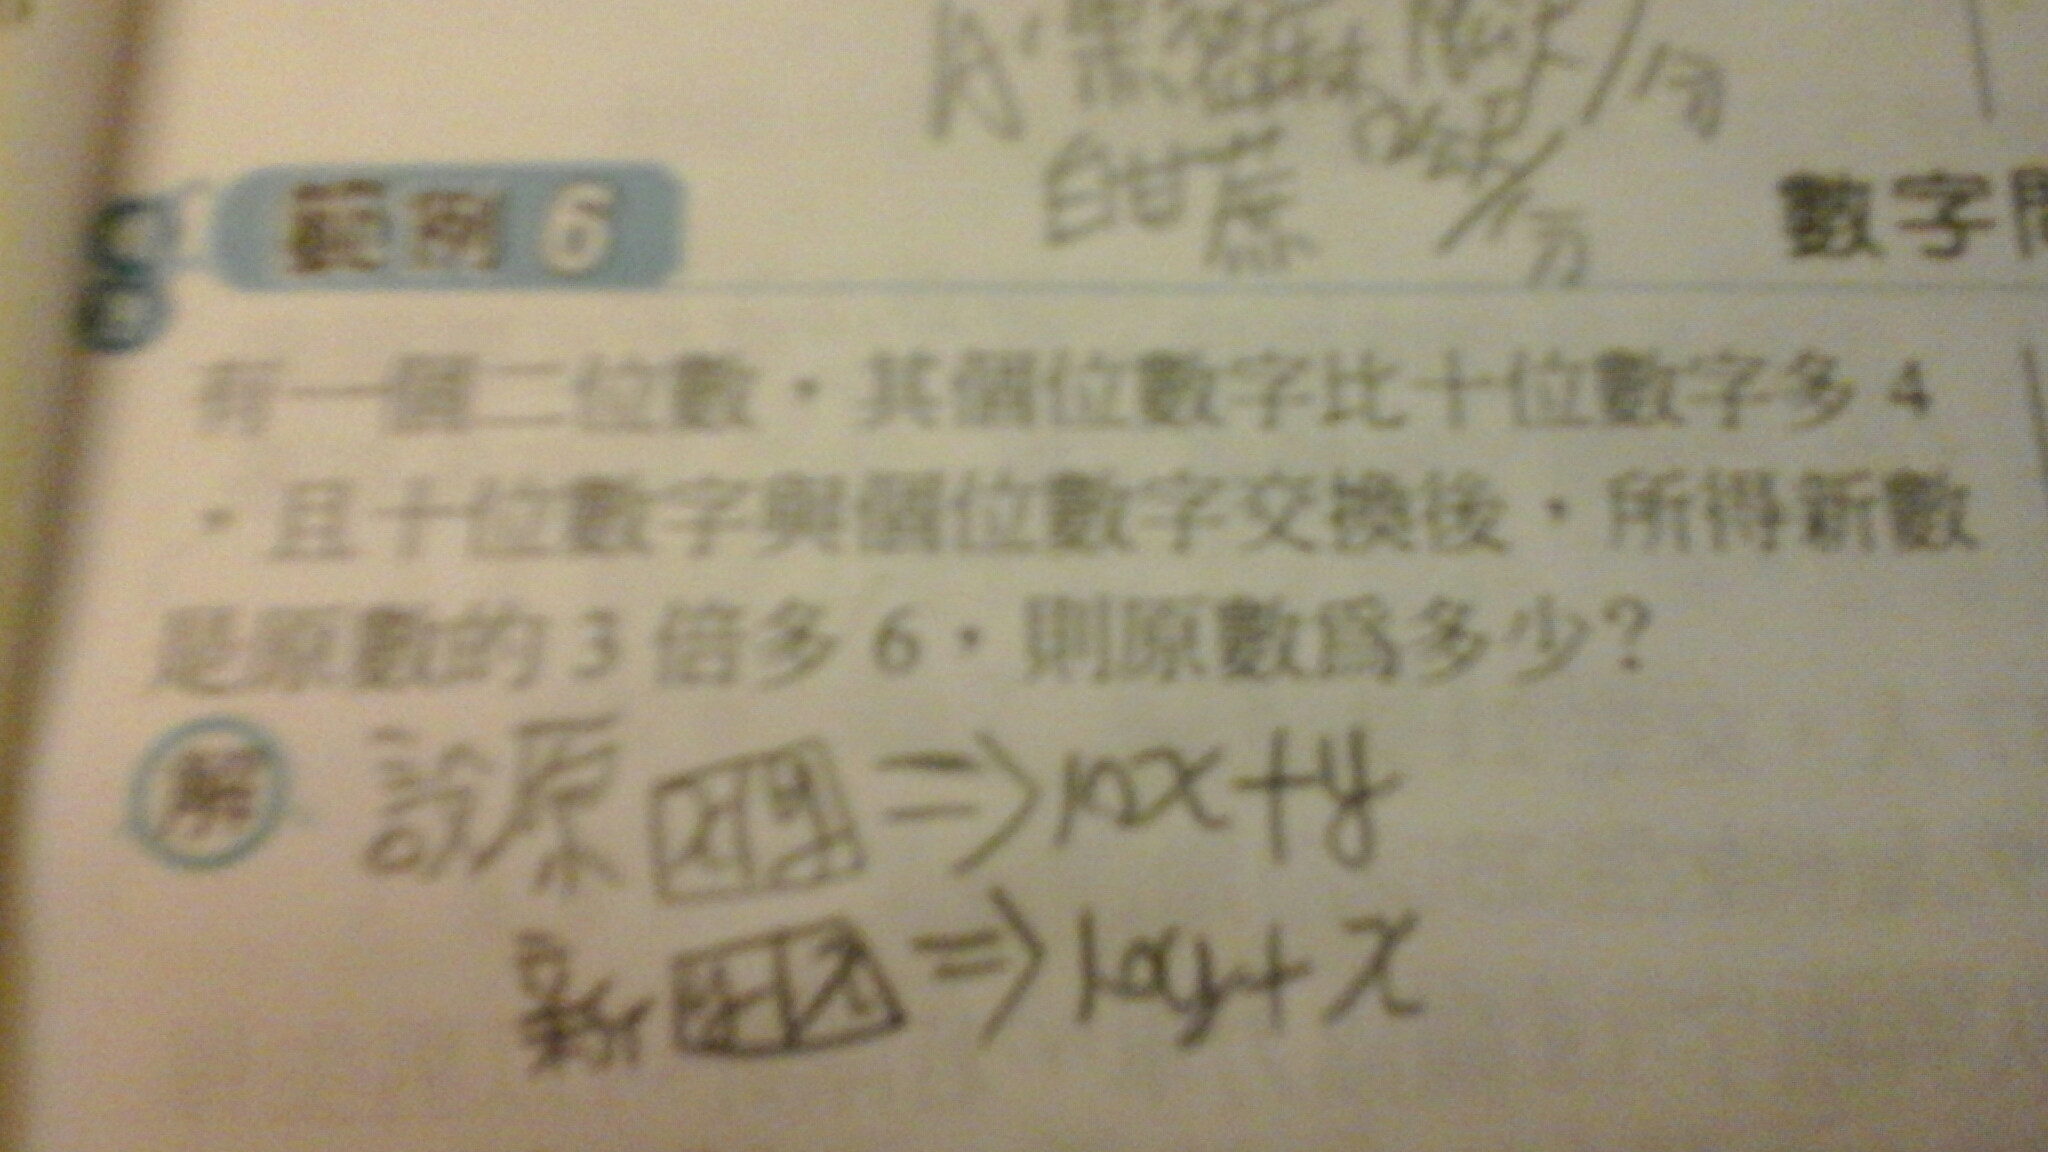 範例 6
數字
有一個二位數，其個位數字比十位數字多 4
，且十位數字與個位數字交換後，所得新數
是原數的 3 倍多 6，則原數為多少？
解 設原 x y ⇒ 10x+y
新 y x ⇒ 10y+x